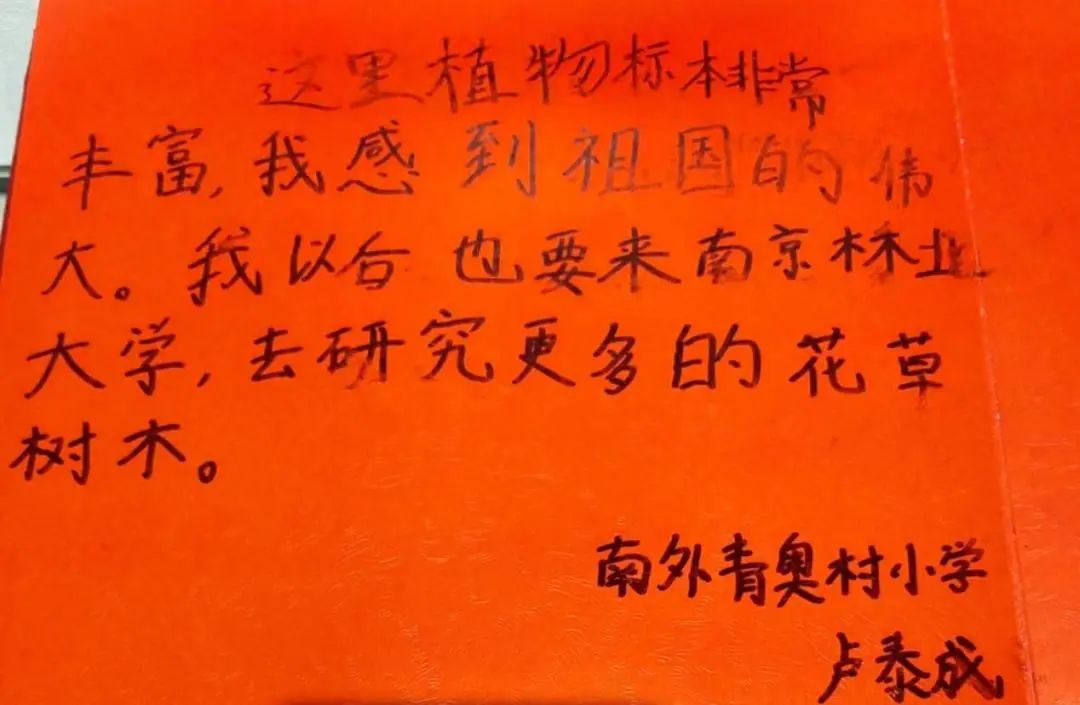 这里植物标本非常
丰富,我感到祖国的伟
大。我以后也要来南京林业
大学,去研究更多的花草
树木。
南外青奥村小学
卢泰成